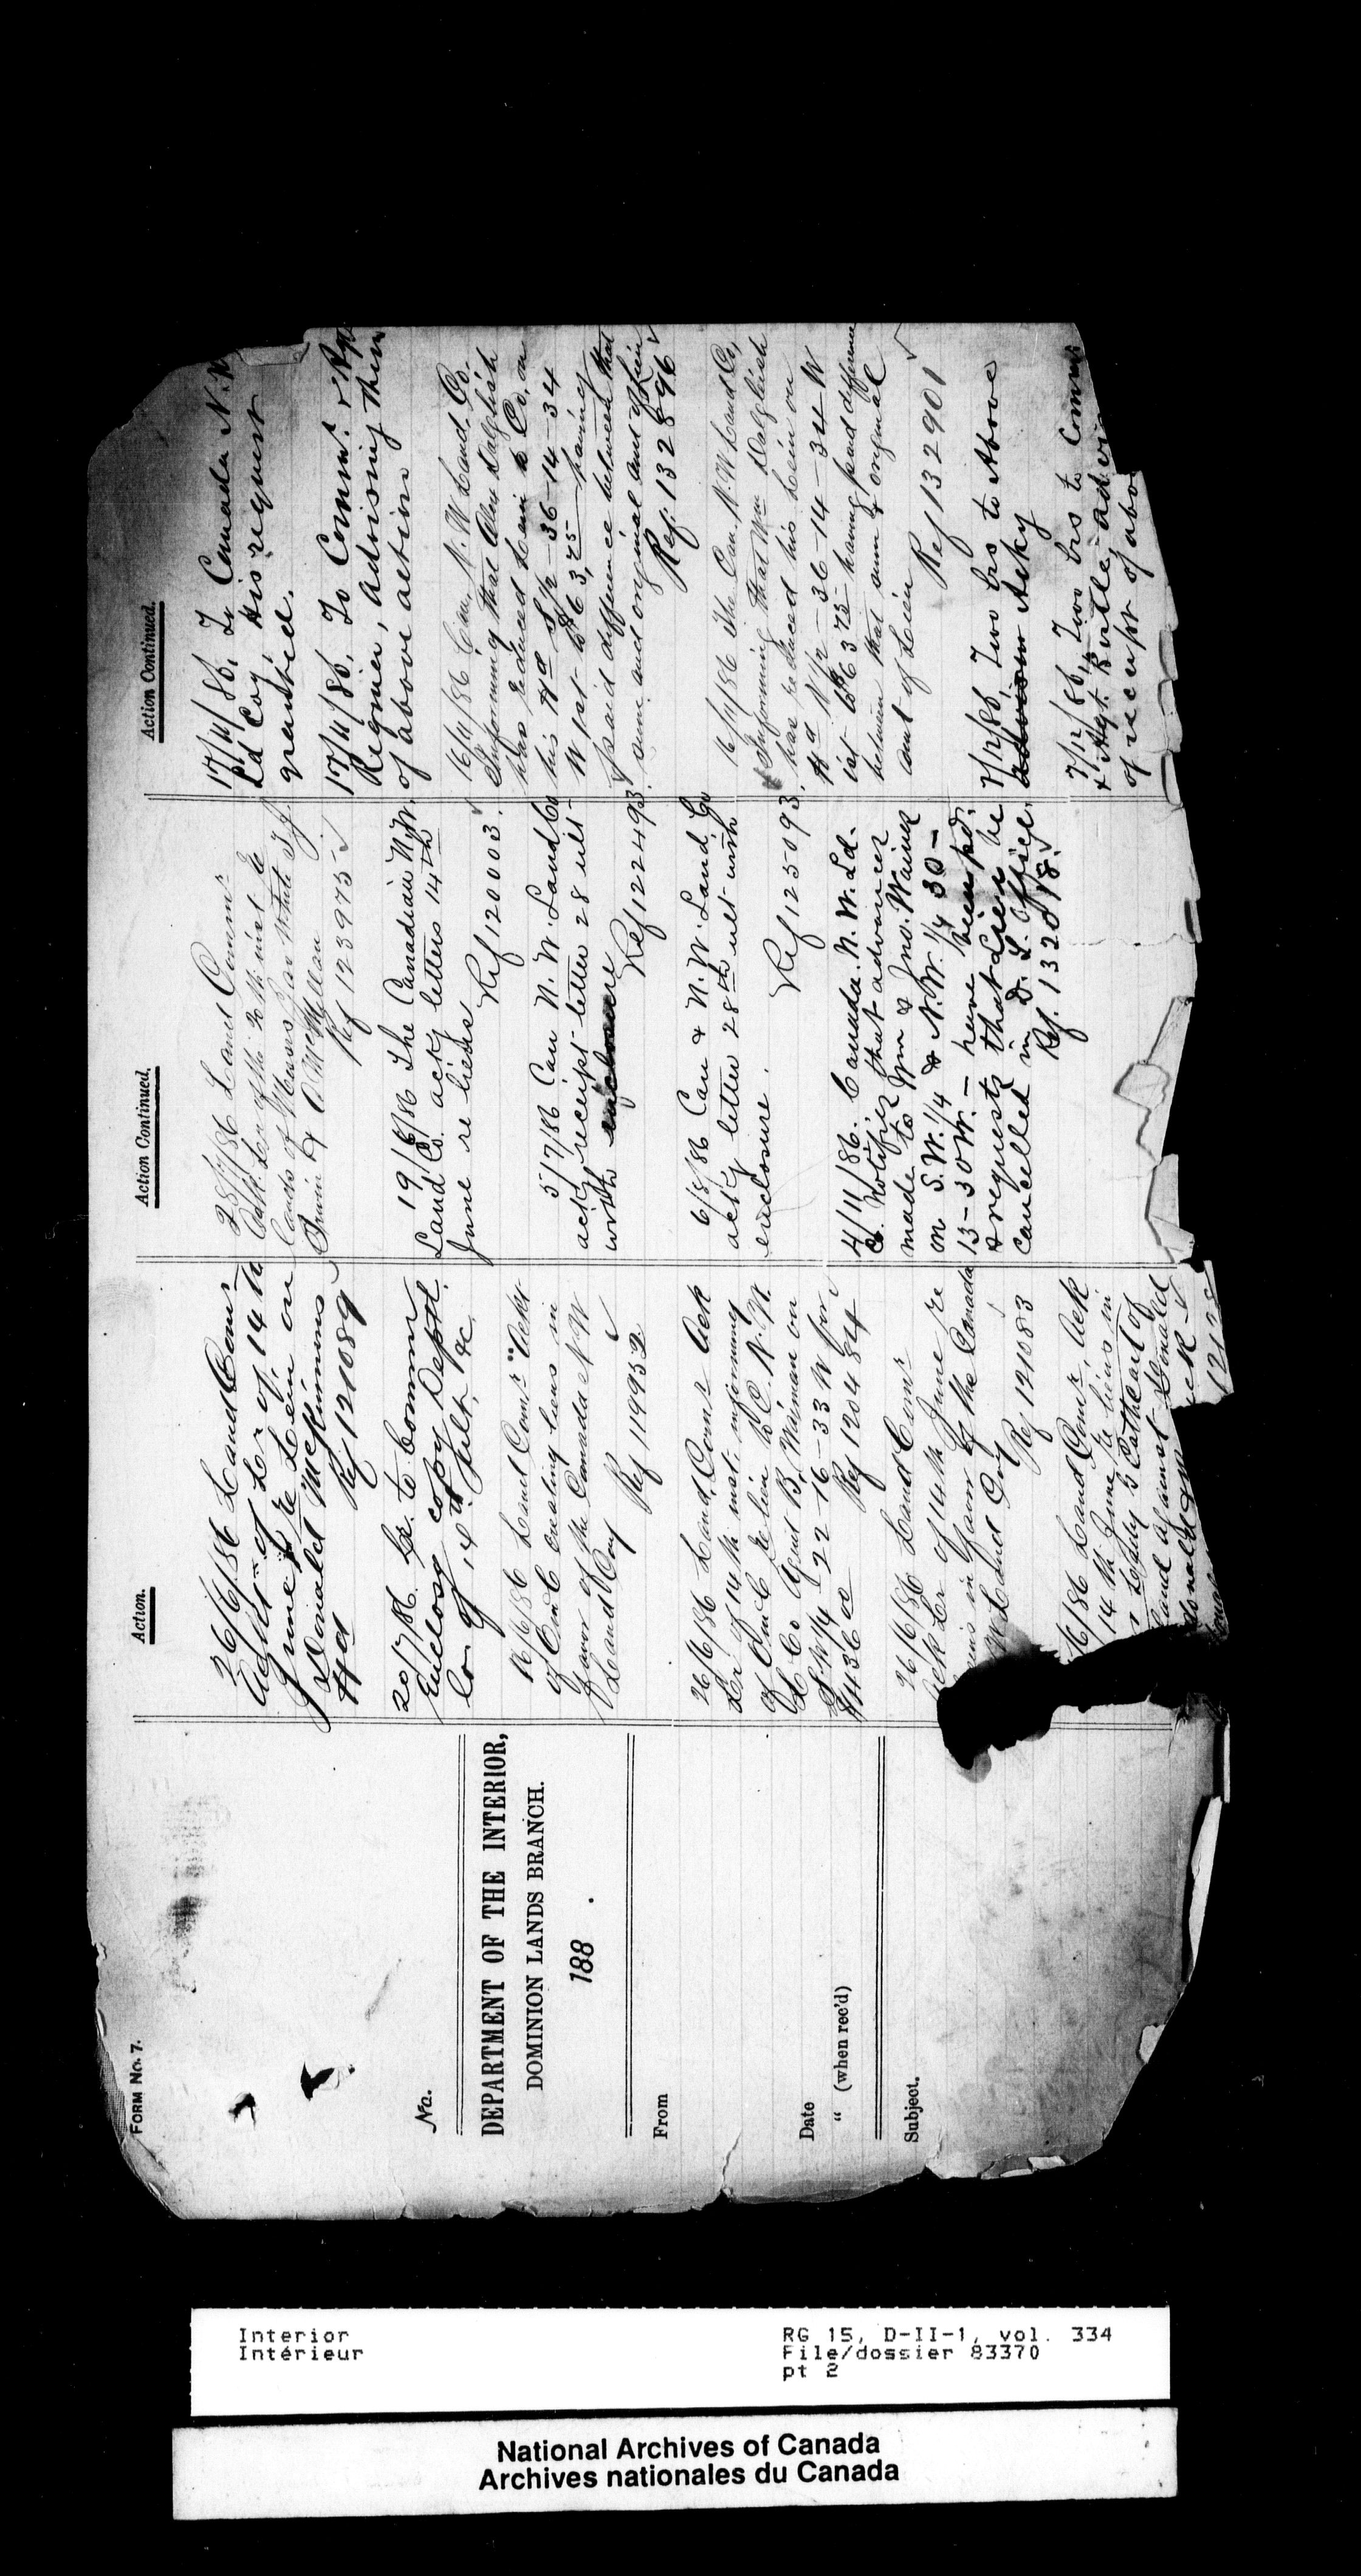 FORM No. 7.
No.
DEPARTMENT OF THE INTERIOR,
DOMINION LANDS BRANCH.
188 .
From
Date
" (when rec'd)
Subject.
Action.
26/6/86 Land Comr
of Lr of 14th
June re Lien on
Donald McKinnons
Hd Ref 121089
20/7/86. Lr. to Commr
Enclosg copy Deptl.
Lr of 14th &c.
Land Comr Ackr
of O in C creating liens in
favor of the Canada N W
Land Coy
Ref 119952
26/6/86 Land Comr Ack
Lr of 14th inst. informing
of O in C re lien to C. N. W.
L Co agnst B. on
S.W 1/4 22-16-33 W for
Ref 120484
26/6/86 Land Comr
Ack Lr of 14th June re
liens in favor of the Canada
N W Land Coy
Ref 121083
/6/86 Land Comr, Ack
14th June re liens in
Cathcart of
land against Donald
donald
Action Continued.
28/7/86 Land Commr
Ack. Lr of the 20th inst re
lands of Messrs
& A McMillan
Ref 123975
19/6/86 The Canadian N.W.
Land Co. ackg letters 14th
June re liens
Ref 120003.
5/7/86 Can N. W. Land Co
ackg receipt letter 28 ult
with enclosure
Ref 122493
6/8/86 Can & N. W. Land Co
ackg letter 28th ult with
enclosure.
Ref 125093
4/11/86. Canada. N. W. Ld.
Co. Notifies that advances
made to Wm & Jno. Waines
on S.W. 1/4 & N.W. 1/4 30 -
13-30 W. - have been pd.
& requests that Lien be
cancelled in D. L. Office.
Ref. 132018.
Action Continued.
17/11/86, To Canada N.W
Ld Coy, His request
granted.
17/11/86, To Commr &
Register, advising them
of above action
16/11/86 Can. N. W Land. Co.
Informing that Alex Dalglish
has reduced Lien to Co. on
his Hd S/½ - 36-14-34
W 1st to $63,75 having
paid difference between that
sum and original amt of Lien
Ref: 132896
16/11/86 The Can. N.W Land Co,
Informing that Wm Dalgleish
has reduced his Lien on
Hd N/½ - 36-14-34 W
1st to $63.75 having paid difference
between that sum & original
amt of Lien
Ref 132901
7/12/86, Two Lrs to Above
Ackg
7/12/86, Two Lrs to Comr
& Agt. Birtle
of receipt of abo
Interior
Intérieur
RG 15, D-II-1, vol. 334
File/dossier 83370
pt 2
National Archives of Canada
Archives nationales du Canada